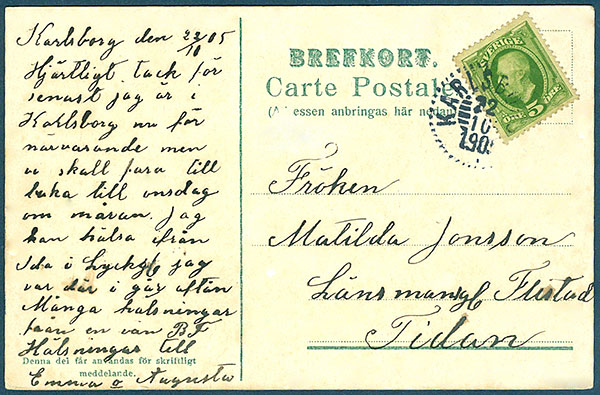 Karlsborg den 22/10 05
Hjärtligt tack för
senast jag är i
Karlsborg nu för
närvarande men
vi skall fara till
baka till onsdag
om måran. Jag
kan hälsa från
Ida i jag
var där i går aftån
Många hälsningar
från en vän B F
Hälsningar till
Denna del får användas för skriftligt
meddelande.
Emma o Augusta
BREFKORT.
Carte Postale
essen anbringas här nedan
SVERIGE
5
ÖRE
KARLSBORG
22
10
1905
Fröken
Matilda Jonsson
Flistad
Tidan